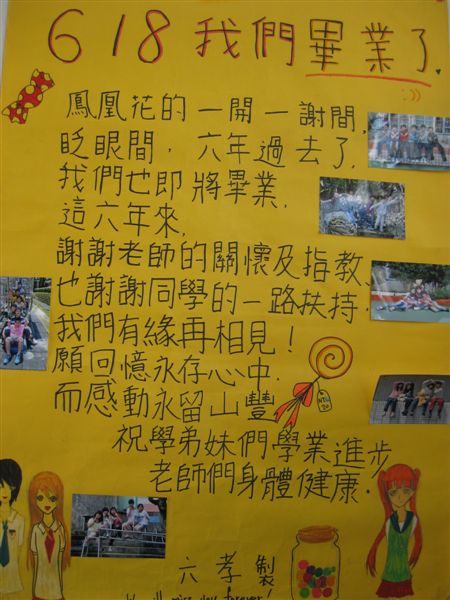 618我們畢業了.
:))
鳳凰花的一開一謝間,
眨眼間,六年過去了,
我們也即將畢業.
這六年來,
謝謝老師的關懷及指教、
也謝謝同學的一路扶持.
我們有緣再相見!
願回憶永存心中.
而感動永留山豐
祝學弟妹們學業進步
老師們身體健康.
六孝製
miss you forever!